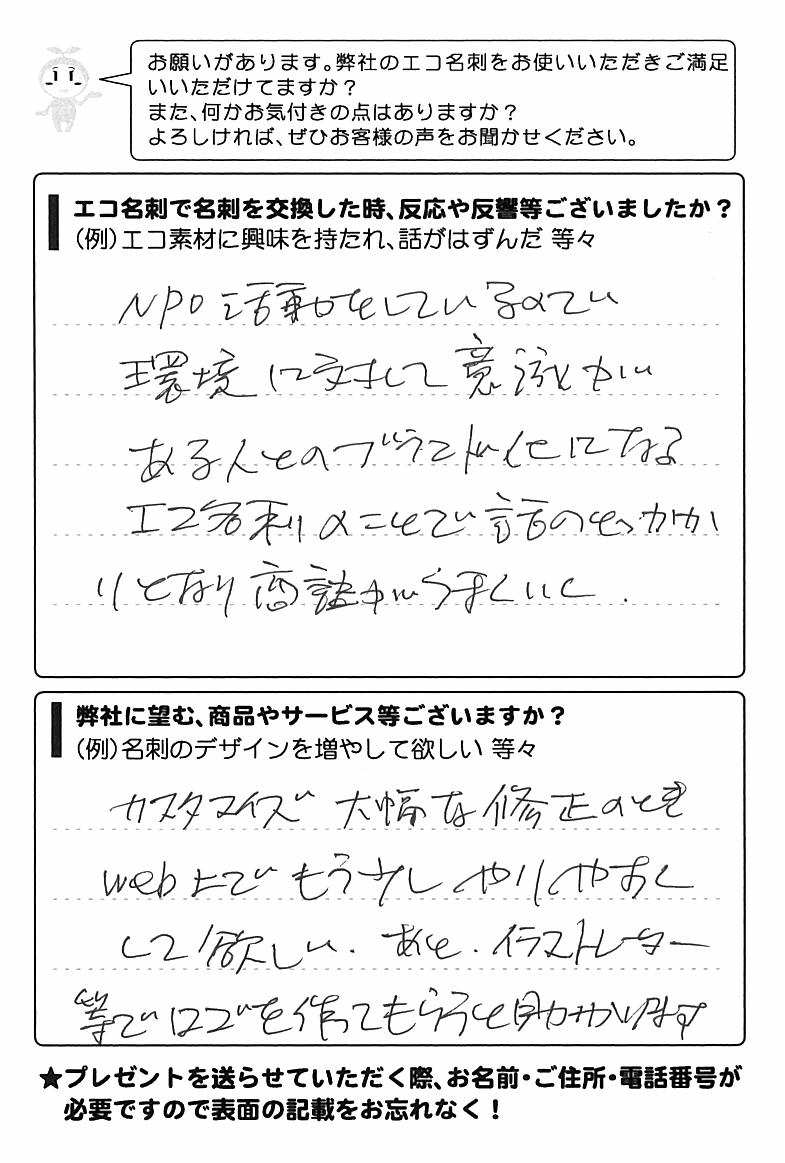 お願いがあります。弊社のエコ名刺をお使いいただきご満足
いいただけてますか？
また、何かお気付きの点はありますか？
よろしければ、ぜひお客様の声をお聞かせください。
エコ名刺で名刺を交換した時、反応や反響等ございましたか？
（例）エコ素材に興味を持たれ、話がはずんだ 等々
NPO活動をしているので
環境に対して意識が
ある人とのブランド化になる
エコ名刺のことで話のきっかけ
りとなり商談がうまくいく.
弊社に望む、商品やサービス等ございますか？
（例）名刺のデザインを増やして欲しい 等々
カスタマイズ 大幅な修正のとき
web上でもう少しやりやすく
して欲しい. あと. イラストレーター
等でロゴを作ってもらうと助かります
★プレゼントを送らせていただく際、お名前・ご住所・電話番号が
必要ですので表面の記載をお忘れなく！